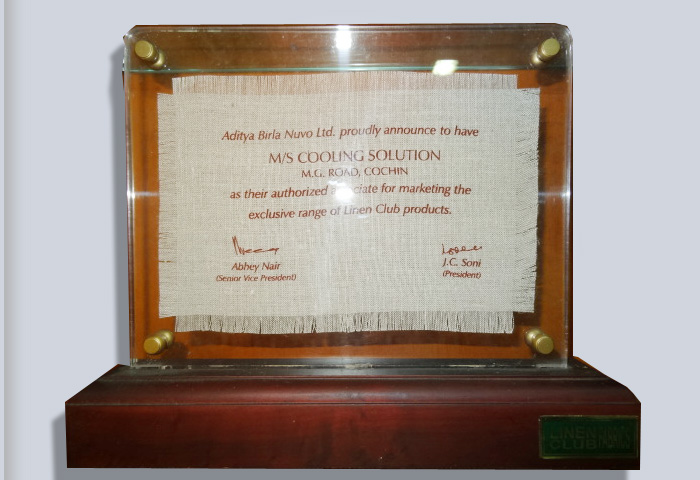 Aditya Birla Nuvo Ltd. proudly announce to have
M/S COOLING SOLUTION
M.G. ROAD, COCHIN
as their authorized associate for marketing the
exclusive range of Linen Club products.
Abhey Nair
(Senior Vice President)
J.C. Soni
(President)
LINEN
CLUB